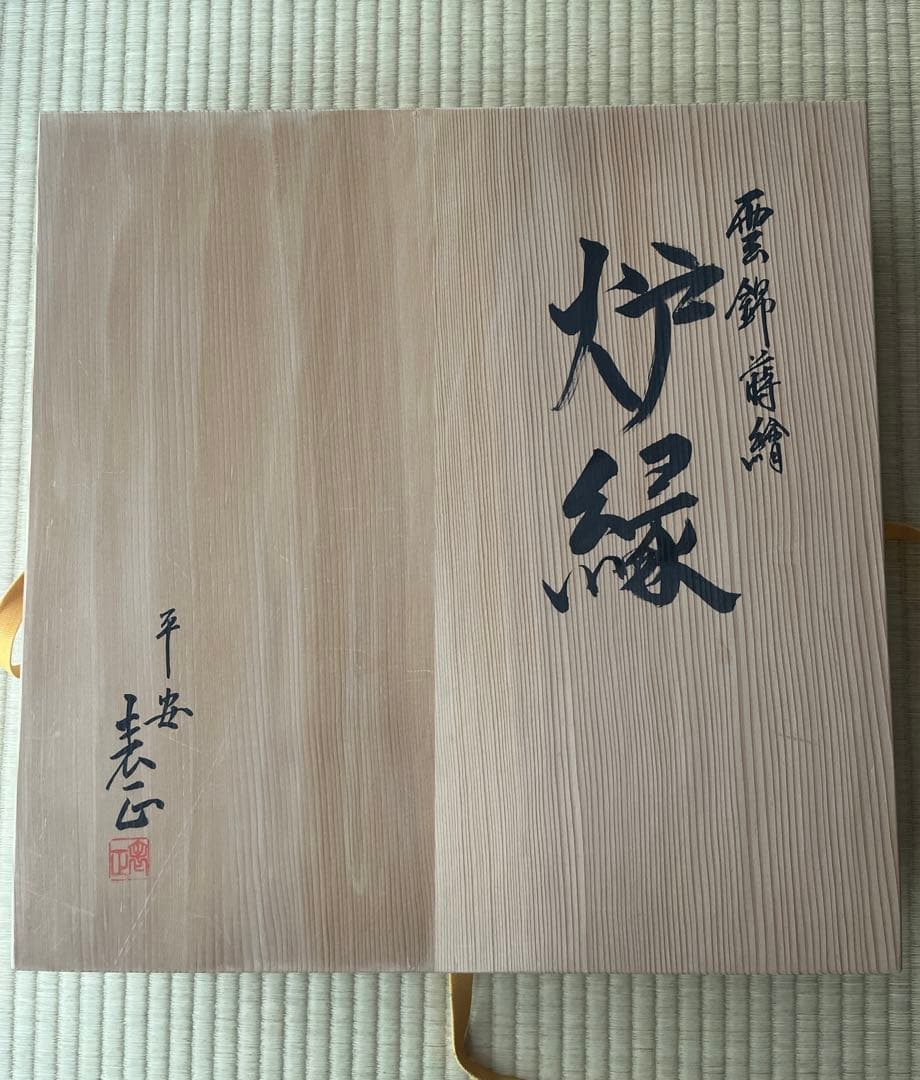 雲錦蒔繪
炉縁
平安
表正